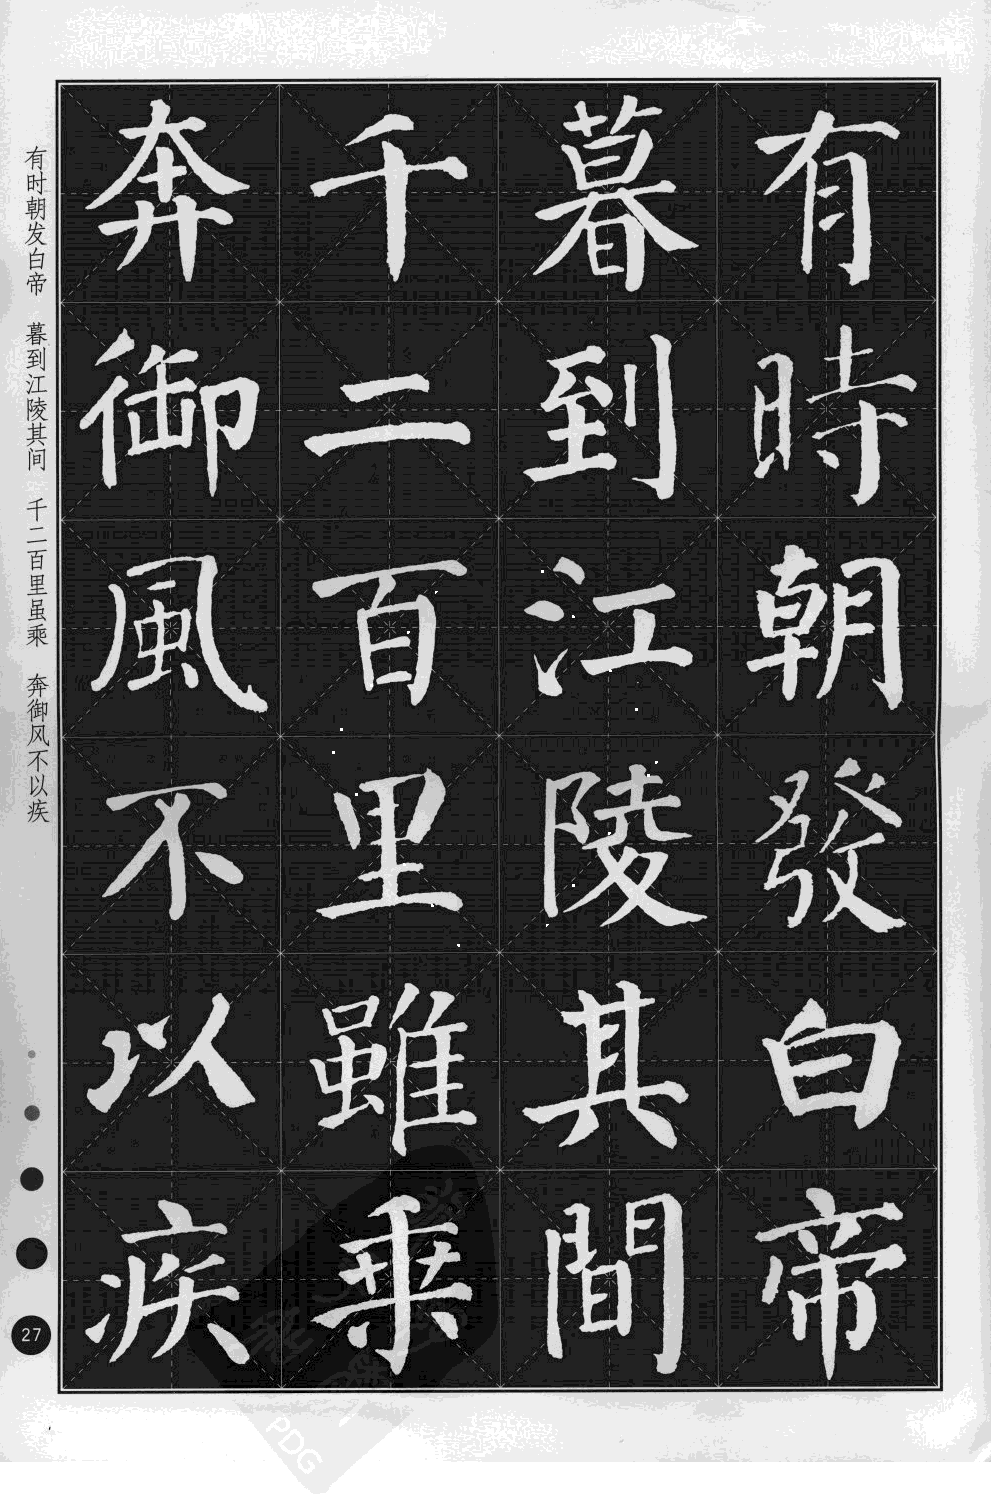 有時朝發白帝
暮到江陵其間
千二百里雖乗
奔御風不以疾
有时朝发白帝 暮到江陵其间 千二百里虽乘 奔御风不以疾
27
PDG